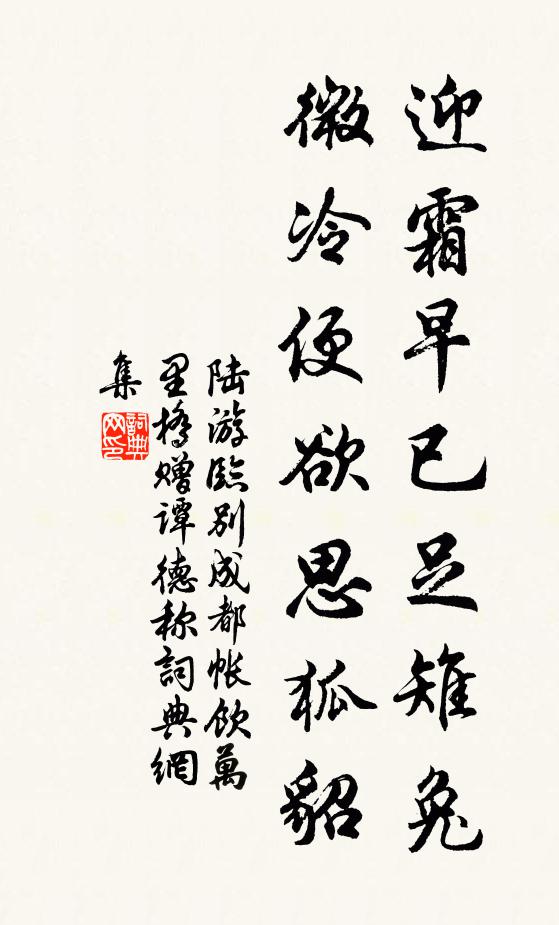 迎霜早已足雉兔
微冷便欲思狐貂
陆游临别成都帐饮萬
里橋赠谭德称詞典網
集
詞典网印